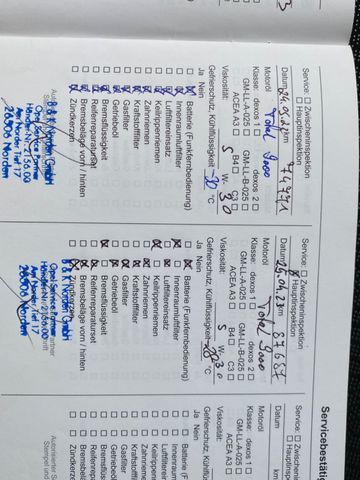 Servicebestätig
Service: □ Zwischeninspektion
□ Hauptinspektion
Datum 24.05.22 km 74791
Motoröl Total 9000
Klasse: dexos 1 □ dexos 2 □
GM-LL-A-025 □ GM-LL-B-025 □
ACEA A3 □ B4 □ C3 □
Viskosität: 5 W- 30
Gefrierschutz, Kühlflüssigkeit °C
Ja Nein
Batterie (Funkfernbedienung)
Innenraumluftfilter
Luftfiltereinsatz
Keilrippenriemen
Zahnriemen
Kraftstofffilter
Gasfilter
Getriebeöl
Bremsflüssigkeit
Reifenreparaturset
Bremsbeläge vorn / hinten
Zündkerzen
B & K Norden GmbH
Opel Service Partner
Am Norder Tief 17
26506 Norden
Service: □ Zwischeninspektion
Hauptinspektion
Datum 25.04.23 km 87687
Motoröl Total 9000
Klasse: dexos 1 □ dexos 2 □
GM-LL-A-025 □ GM-LL-B-025 □
ACEA A3 □ B4 □ C3 □
Viskosität: 5 W- 30
Gefrierschutz, Kühlflüssigkeit °C
Ja Nein
Batterie (Funkfernbedienung)
Innenraumluftfilter
Luftfiltereinsatz
Keilrippenriemen
Zahnriemen
Kraftstofffilter
Gasfilter
Getriebeöl
Bremsflüssigkeit
Reifenreparaturset
Bremsbeläge vorn / hinten
Zündkerzen
B & K Norden GmbH
Opel Service Partner
Am Norder Tief 17
26506 Norden
Service: □ Zwischeninsp
□ Hauptinspe
Datum km
Motoröl
Klasse: dexos 1 □
GM-LL-A-025 □
ACEA A3 □
Viskosität:
Gefrierschutz, Kühlflüss
Ja Nein
Batterie (Funk
Innenraumluft
Luftfiltereinsa
Keilrippenrie
Zahnriemen
Kraftstofffilte
Gasfilter
Getriebeöl
Bremsflüssi
Reifenrepa
Bremsbelä
Zündkerzen
Autorisierter S
Stempel und